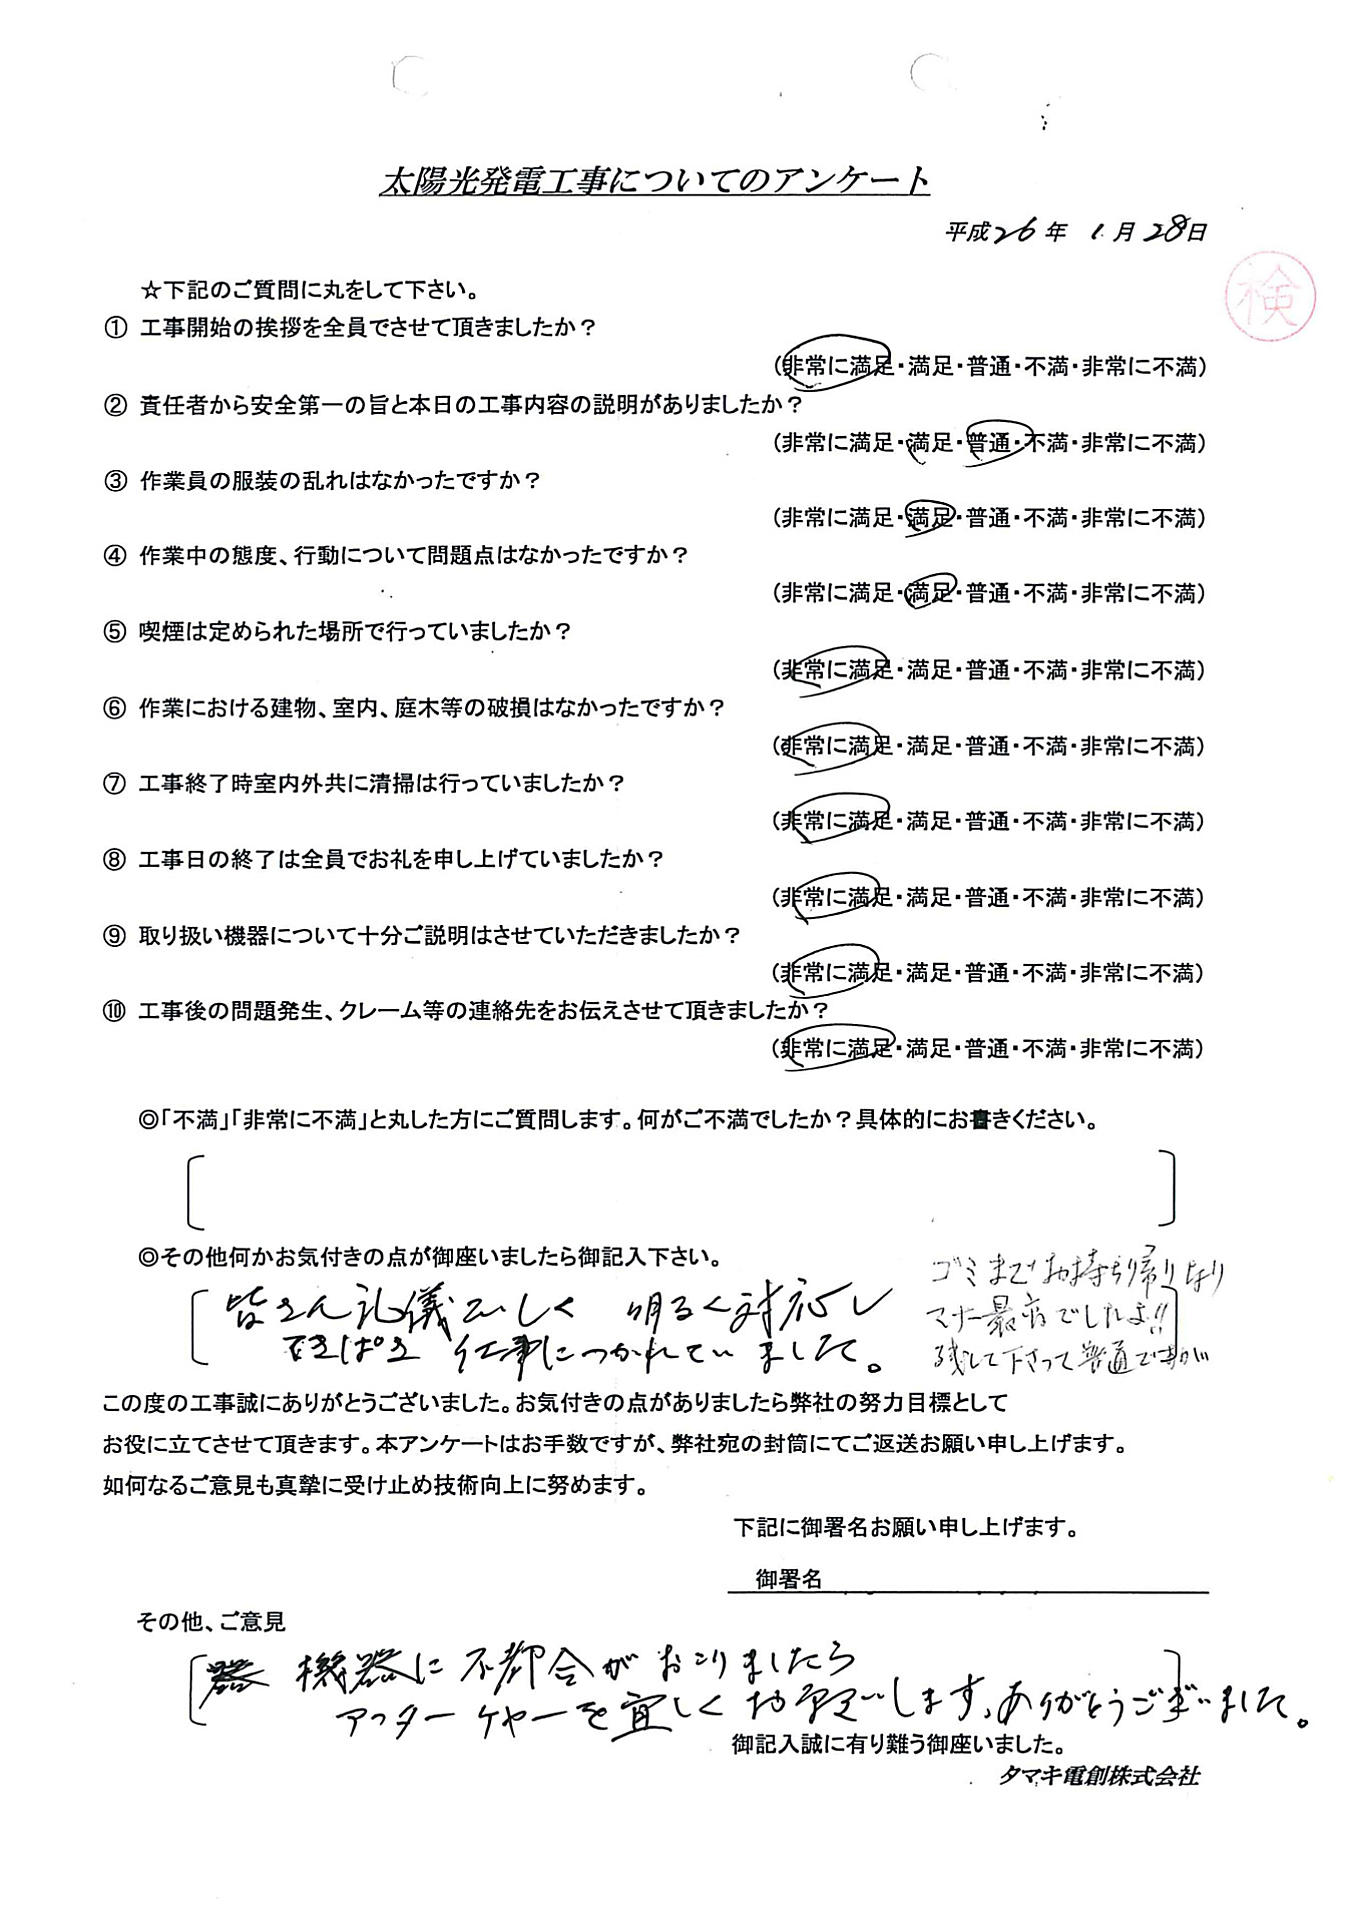 太陽光発電工事についてのアンケート
平成26年 1月28日
検
☆下記のご質問に丸をして下さい。
① 工事開始の挨拶を全員でさせて頂きましたか？
（非常に満足・満足・普通・不満・非常に不満）
② 責任者から安全第一の旨と本日の工事内容の説明がありましたか？
（非常に満足・満足・普通・不満・非常に不満）
③ 作業員の服装の乱れはなかったですか？
（非常に満足・満足・普通・不満・非常に不満）
④ 作業中の態度、行動について問題点はなかったですか？
（非常に満足・満足・普通・不満・非常に不満）
⑤ 喫煙は定められた場所で行っていましたか？
（非常に満足・満足・普通・不満・非常に不満）
⑥ 作業における建物、室内、庭木等の破損はなかったですか？
（非常に満足・満足・普通・不満・非常に不満）
⑦ 工事終了時室内外共に清掃は行っていましたか？
（非常に満足・満足・普通・不満・非常に不満）
⑧ 工事日の終了は全員でお礼を申し上げていましたか？
（非常に満足・満足・普通・不満・非常に不満）
⑨ 取り扱い機器について十分ご説明はさせていただきましたか？
（非常に満足・満足・普通・不満・非常に不満）
⑩ 工事後の問題発生、クレーム等の連絡先をお伝えさせて頂きましたか？
（非常に満足・満足・普通・不満・非常に不満）
◎「不満」「非常に不満」と丸した方にご質問します。何がご不満でしたか？具体的にお書きください。
◎その他何かお気付きの点が御座いましたら御記入下さい。
皆さん礼儀正しく 明るく対応し
てきぱき 仕事につかれていました。
ゴミまでお持ち帰りなり
マナー最高でしたよ!!
残して下さって普通ですが
この度の工事誠にありがとうございました。お気付きの点がありましたら弊社の努力目標として
お役に立てさせて頂きます。本アンケートはお手数ですが、弊社宛の封筒にてご返送お願い申し上げます。
如何なるご意見も真摯に受け止め技術向上に努めます。
下記に御署名お願い申し上げます。
御署名
その他、ご意見
機器に不都合がおこりましたら
アフターケヤーを宜しくお願いします。ありがとうございました。
御記入誠に有り難う御座いました。
タマキ電創株式会社